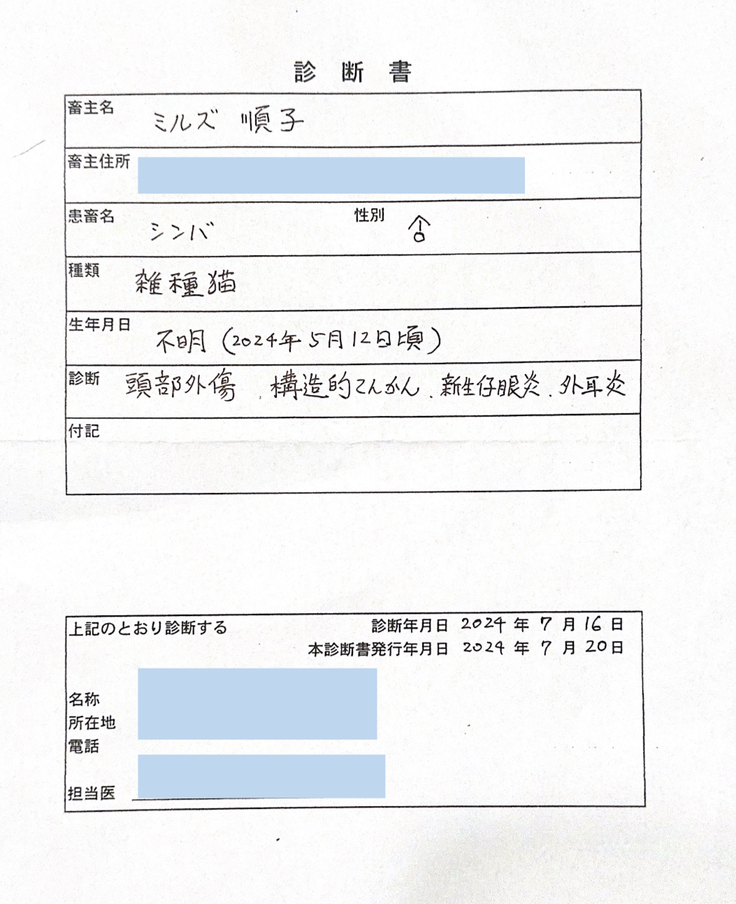 診断書
畜主名 ミルズ 順子
畜主住所
患畜名 シンバ 性別 ♂
種類 雑種猫
生年月日 不明（2024年5月12日頃）
診断 頭部外傷、構造的てんかん、新生仔眼炎、外耳炎
付記
上記のとおり診断する 診断年月日 2024 年 7 月 16 日
本診断書発行年月日 2024 年 7 月 20 日
名称
所在地
電話
担当医